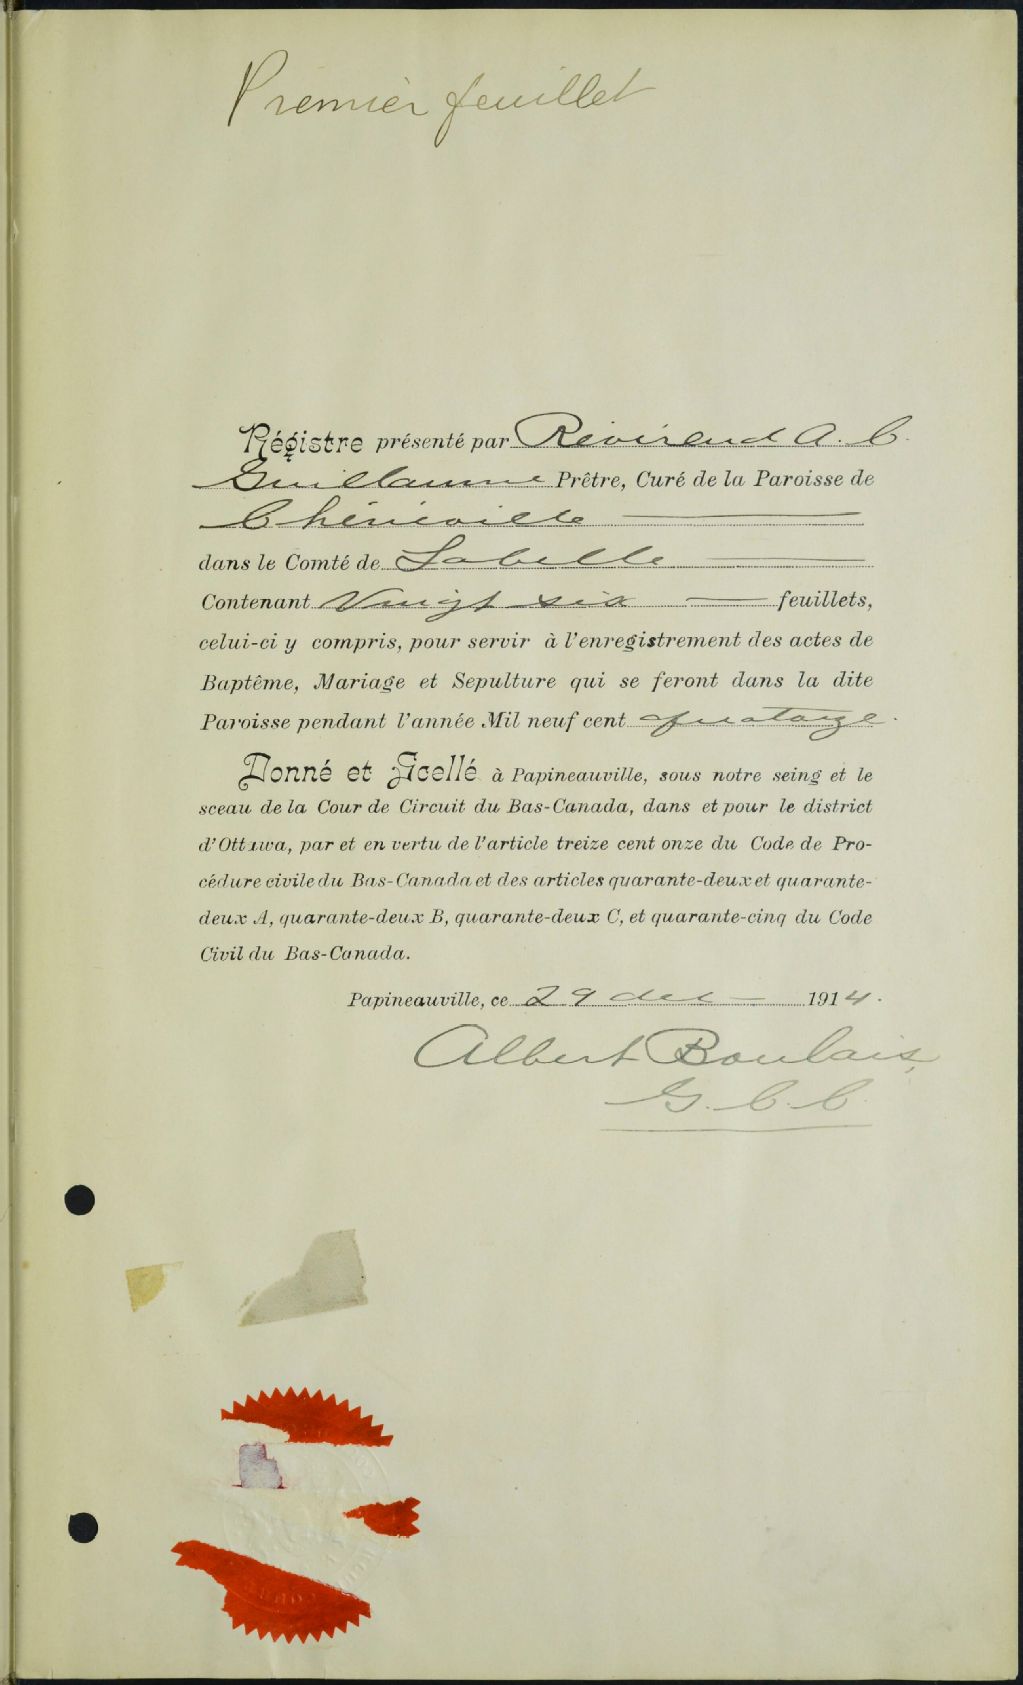 Premièr feuillet
Régistre présenté par Révérend A. C.
Guillaume Prêtre, Curé de la Paroisse de
Chénéville
dans le Comté de Labelle
Contenant Vingt six feuillets,
celui-ci y compris, pour servir à l'enregistrement des actes de
Baptême, Mariage et Sepulture qui se feront dans la dite
Paroisse pendant l'année Mil neuf cent quatorze.
Donné et Scellé à Papineauville, sous notre seing et le
sceau de la Cour de Circuit du Bas-Canada, dans et pour le district
d'Ottawa, par et en vertu de l'article treize cent onze du Code de Pro-
cédure civile du Bas-Canada et des articles quarante-deux et quarante-
deux A, quarante-deux B, quarante-deux C, et quarante-cinq du Code
Civil du Bas-Canada.
Papineauville, ce 29 dec 1914.
Albert Boulais,
G. C. C.